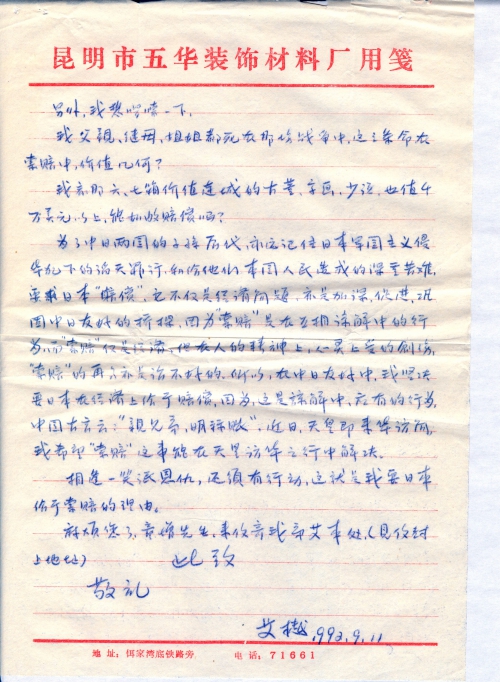 昆明市五华装饰材料厂用笺
另外,我想啰嗦一下,
我父亲、继母、姐姐都死在那场战争中,这三条命在
索赔中,价值几何?
我家那六、七箱价值连城的古董、字画,少说,也值4
万美元以上,能如数赔偿吗?
为了中日两国的子孙后代,永远记住日本军国主义侵
华犯下的滔天罪行,和给他们本国人民造成的深重苦难,
要求日本“赔偿”,它不仅是经济问题,亦是加深、促进、巩
固中日友好的桥梁,因为“索赔”是在互相谅解中的行
为,而“索赔”仅是经济,但在人的精神上,心灵上受的创伤,
“索赔”的再多亦是治不好的。所以,在中日友好中,我坚决
要日本在经济上给于赔偿,因为,这是谅解中,应有的行为,
中国古言云:“親兄弟,明标账”。近日,天皇即来华访问,
我希望“索赔”这事能在天皇访华之行中解决。
相逢一笑泯恩仇,还须有行动,这就是我要日本
给于索赔的理由。
麻烦您了,童增先生,来信寄我家艾本处,(见信封
上地址) 此致
敬礼
艾 1992.9.11
地 址:饵家湾底铁路旁 电 话:71661